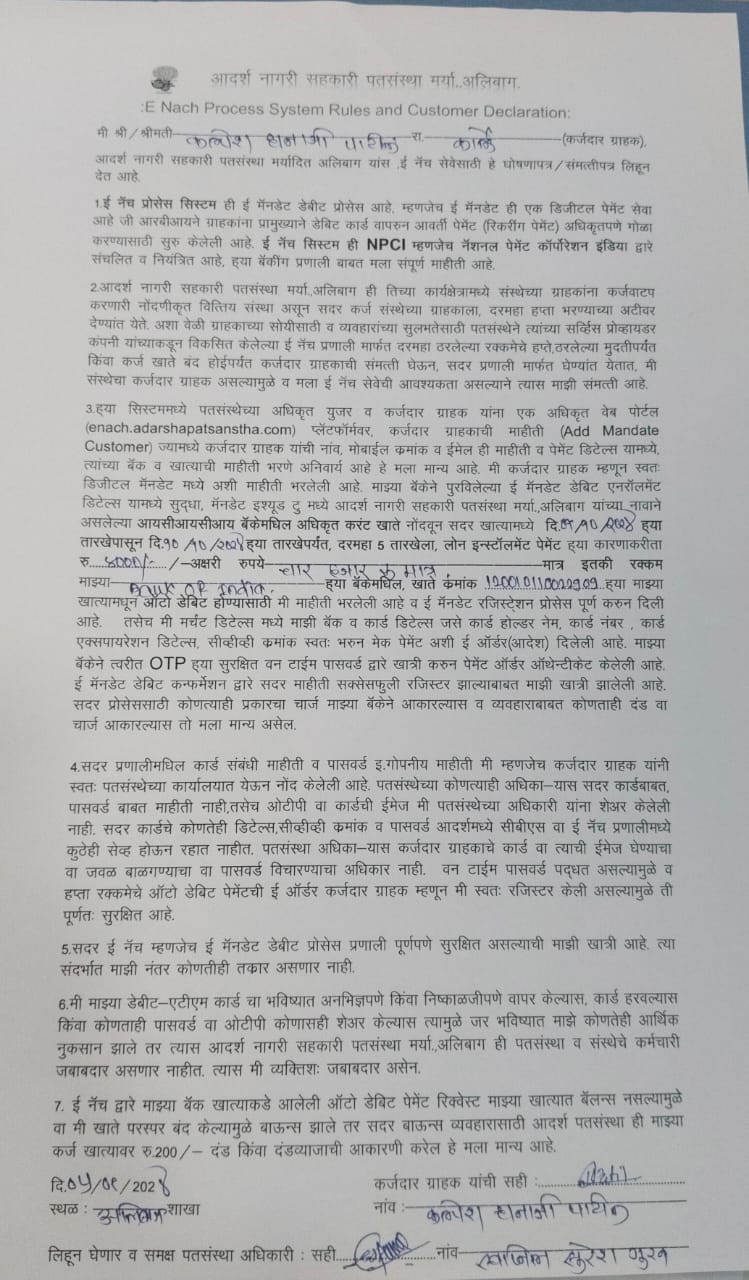 आदर्श नागरी सहकारी पतसंस्था मर्या.,अलिबाग.
:E Nach Process System Rules and Customer Declaration:
मी श्री/श्रीमती कल्पेश हानाजी पाटील रा. कार्ले (कर्जदार ग्राहक),
आदर्श नागरी सहकारी पतसंस्था मर्यादित अलिबाग यांस ,ई नॅच सेवेसाठी हे घोषणापत्र/संमत्तीपत्र लिहून
देत आहे.
1.ई नॅच प्रोसेस सिस्टम ही ई मॅनडेट डेबीट प्रोसेस आहे, म्हणजेच ई मॅनडेट ही एक डिजीटल पेमेंट सेवा
आहे जी आरबीआयने ग्राहकांना प्रामुख्याने डेबिट कार्ड वापरुन आवर्ती पेमेंट (रिकरींग पेमेंट) अधिकृतपणे गोळा
करण्यासाठी सुरु केलेली आहे. ई नॅच सिस्टम ही NPCI म्हणजेच नॅशनल पेमेंट कॉर्पोरेशन इंडिया द्वारे
संचलित व नियंत्रित आहे, ह्या बॅकींग प्रणाली बाबत मला संपूर्ण माहीती आहे.
2.आदर्श नागरी सहकारी पतसंस्था मर्या.,अलिबाग ही तिच्या कार्यक्षेत्रामध्ये संस्थेच्या ग्राहकांना कर्जवाटप
करणारी नोंदणीकृत वित्तिय संस्था असून सदर कर्ज संस्थेच्या ग्राहकाला, दरमहा हप्ता भरण्याच्या अटीवर
देण्यांत येते. अशा वेळी ग्राहकाच्या सोयीसाठी व व्यवहारांच्या सुलभतेसाठी पतसंस्थेने त्यांच्या सर्व्हिस प्रोव्हायडर
कंपनी यांच्याकडून विकसित केलेल्या ई नॅच प्रणाली मार्फत दरमहा ठरलेल्या रक्कमेचे हप्ते,ठरलेल्या मुदतीपर्यंत
किंवा कर्ज खाते बंद होईपर्यंत कर्जदार ग्राहकाची संमत्ती घेऊन, सदर प्रणाली मार्फत घेण्यांत येतात, मी
संस्थेचा कर्जदार ग्राहक असल्यामुळे व मला ई नॅच सेवेची आवश्यकता असल्याने त्यास माझी संमत्ती आहे.
3.ह्या सिस्टममध्ये पतसंस्थेच्या अधिकृत युजर व कर्जदार ग्राहक यांना एक अधिकृत वेब पोर्टल
(enach.adarshapatsanstha.com) प्लॅटफॉर्मवर, कर्जदार ग्राहकाची माहीती (Add Mandate
Customer) ज्यामध्ये कर्जदार ग्राहक यांची नांव, मोबाईल क्रमांक व ईमेल ही माहीती व पेमेंट डिटेल्स यामध्ये,
त्यांच्या बॅक व खात्याची माहीती भरणे अनिवार्य आहे हे मला मान्य आहे. मी कर्जदार ग्राहक म्हणून स्वतः
डिजीटल मॅनडेट मध्ये अशी माहीती भरलेली आहे. माझ्या बॅकेने पुरविलेल्या ई मॅनडेट डेबिट एनरॉलमेंट
डिटेल्स यामध्ये सुद्धा, मॅनडेट इश्यूड टु मध्ये आदर्श नागरी सहकारी पतसंस्था मर्या.,अलिबाग यांच्या नावाने
असलेल्या आयसीआयसीआय बॅकेमधिल अधिकृत करंट खाते नोंदवून सदर खात्यामध्ये दि. /10/2024 ह्या
तारखेपासून दि.10/10/202 ह्या तारखेपर्यंत, दरमहा 5 तारखेला, लोन इन्स्टॉलमेंट पेमेंट ह्या कारणाकरीता
रु 4000/- /-अक्षरी रुपये चार हजार रु मात्र. मात्र इतकी रक्कम
माझ्या Bank of India. ह्या बॅकेमधिल, खाते क्रमांक 120010110022909 ह्या माझ्या
खात्यामधून ऑटो डेबिट होण्यासाठी मी माहीती भरलेली आहे व ई मॅनडेट रजिस्ट्रेशन प्रोसेस पूर्ण करुन दिली
आहे. तसेच मी मर्चंट डिटेल्स मध्ये माझी बॅक व कार्ड डिटेल्स जसे कार्ड होल्डर नेम, कार्ड नंबर , कार्ड
एक्सपायरेशन डिटेल्स, सीव्हीव्ही क्रमांक स्वतः भरुन मेक पेमेंट अशी ई ऑर्डर(आदेश) दिलेली आहे. माझ्या
बॅकेने त्वरीत OTP ह्या सुरक्षित वन टाईम पासवर्ड द्वारे खात्री करुन पेमेंट ऑर्डर ऑथेन्टीकेट केलेली आहे.
ई मॅनडेट डेबिट कन्फर्मेशन द्वारे सदर माहीती सक्सेसफुली रजिस्टर झाल्याबाबत माझी खात्री झालेली आहे.
सदर प्रोसेससाठी कोणत्याही प्रकारचा चार्ज माझ्या बॅकेने आकारल्यास व व्यवहाराबाबत कोणताही दंड वा
चार्ज आकारल्यास तो मला मान्य असेल.
4.सदर प्रणालीमधिल कार्ड संबंधी माहीती व पासवर्ड इ.गोपनीय माहीती मी म्हणजेच कर्जदार ग्राहक यांनी
स्वतः पतसंस्थेच्या कार्यालयात येऊन नोंद केलेली आहे. पतसंस्थेच्या कोणत्याही अधिका-यास सदर कार्डबाबत,
पासवर्ड बाबत माहीती नाही,तसेच ओटीपी वा कार्डची ईमेज मी पतसंस्थेच्या अधिकारी यांना शेअर केलेली
नाही. सदर कार्डचे कोणतेही डिटेल्स,सीव्हीव्ही क्रमांक व पासवर्ड आदर्शमध्ये सीबीएस वा ई नॅच प्रणालीमध्ये
कुठेही सेव्ह होऊन रहात नाहीत. पतसंस्था अधिका-यास कर्जदार ग्राहकाचे कार्ड वा त्याची ईमेज घेण्याचा
वा जवळ बाळगण्याचा वा पासवर्ड विचारण्याचा अधिकार नाही. वन टाईम पासवर्ड पद्धत असल्यामुळे व
हप्ता रक्कमेचे ऑटो डेबिट पेमेंटची ई ऑर्डर कर्जदार ग्राहक म्हणून मी स्वतः रजिस्टर केली असल्यामुळे ती
पूर्णतः सुरक्षित आहे.
5.सदर ई नॅच म्हणजेच ई मॅनडेट डेबीट प्रोसेस प्रणाली पूर्णपणे सुरक्षित असल्याची माझी खात्री आहे. त्या
संदर्भात माझी नंतर कोणतीही तक्रार असणार नाही.
6.मी माझ्या डेबीट-एटीएम कार्ड चा भविष्यात अनभिज्ञपणे किंवा निष्काळजीपणे वापर केल्यास, कार्ड हरवल्यास
किंवा कोणताही पासवर्ड वा ओटीपी कोणासही शेअर केल्यास त्यामुळे जर भविष्यात माझे कोणतेही आर्थिक
नुकसान झाले तर त्यास आदर्श नागरी सहकारी पतसंस्था मर्या.,अलिबाग ही पतसंस्था व संस्थेचे कर्मचारी
जबाबदार असणार नाहीत. त्यास मी व्यक्तिशः जबाबदार असेन.
7. ई नॅच द्वारे माझ्या बॅक खात्याकडे आलेली ऑटो डेबिट पेमेंट रिक्वेस्ट माझ्या खात्यात बॅलन्स नसल्यामुळे
वा मी खाते परस्पर बंद केल्यामुळे बाऊन्स झाले तर सदर बाऊन्स व्यवहारासाठी आदर्श पतसंस्था ही माझ्या
कर्ज खात्यावर रु.200/- दंड किंवा दंडव्याजाची आकारणी करेल हे मला मान्य आहे.
दि.05/09/2024 कर्जदार ग्राहक यांची सही :
स्थळ : अलिबाग शाखा नांव: कल्पेश हानाजी पाटील
लिहून घेणार व समक्ष पतसंस्था अधिकारी : सही नांव स्वप्निल सुरेश गुरव